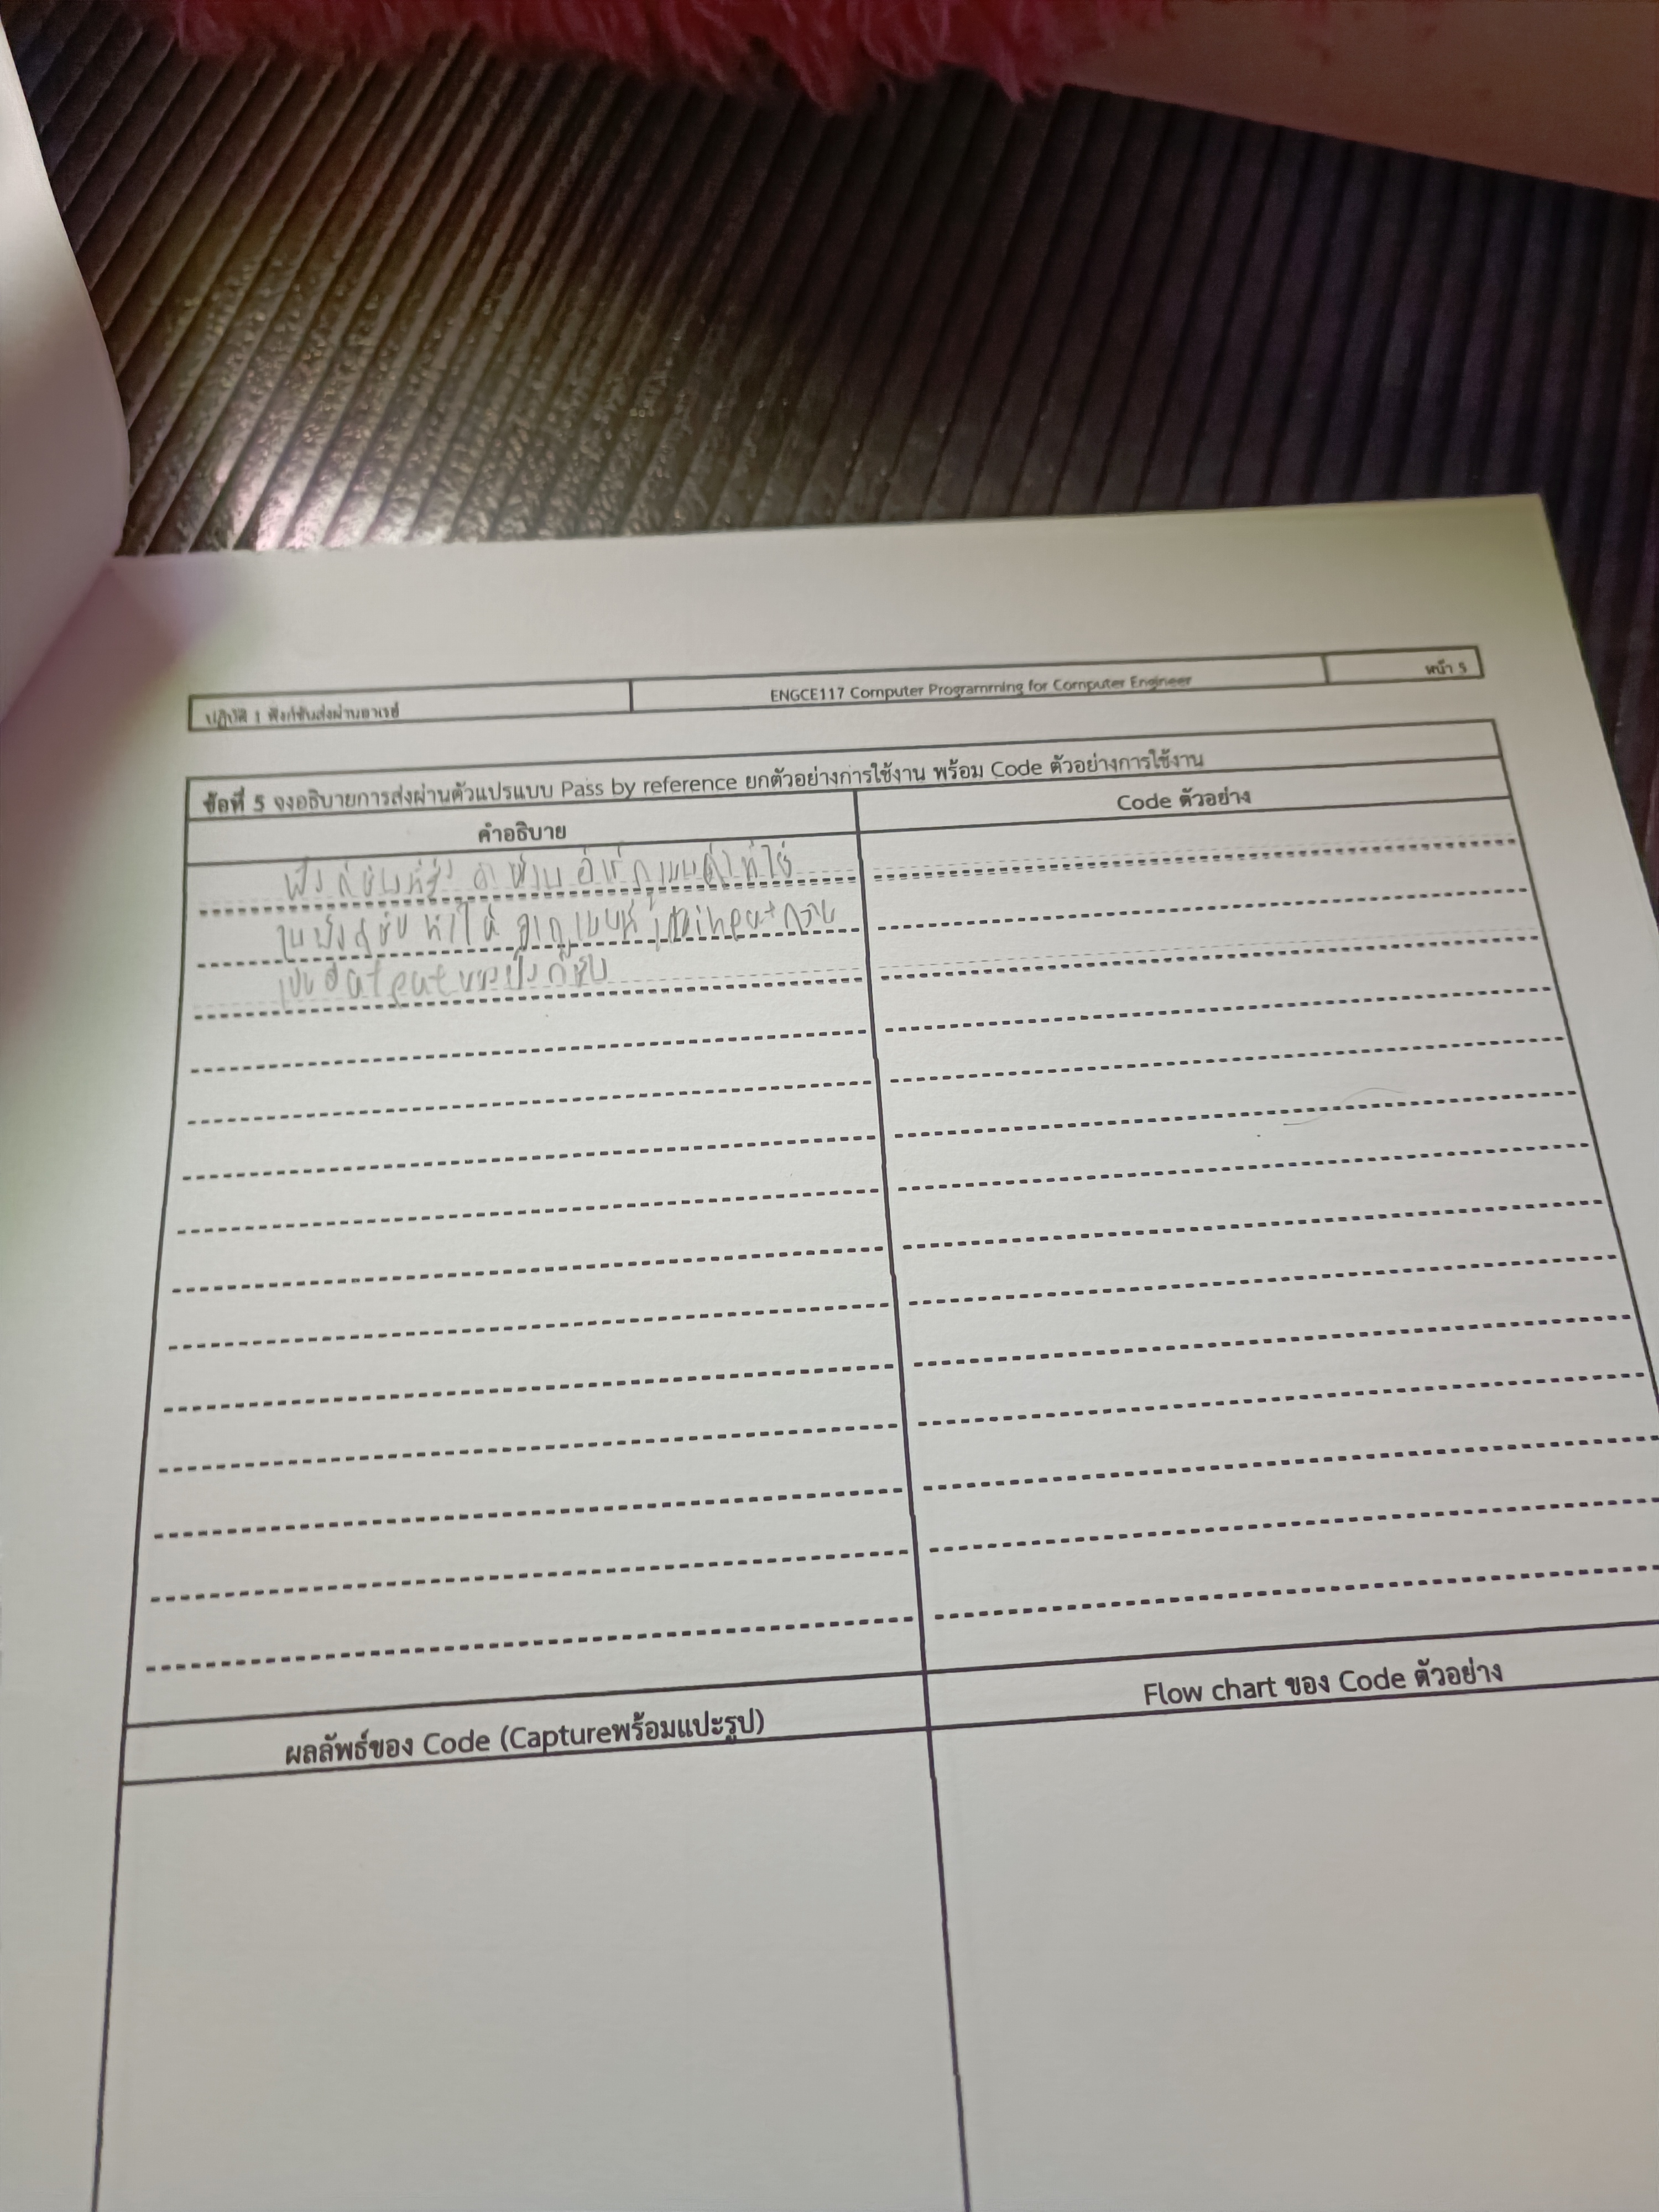 ปฏิบัติ 1 ฟังก์ชันส่งผ่านอาเรย์
ENGCE117 Computer Programming for Computer Engineer
หน้า 5
ข้อที่ 5 จงอธิบายการส่งผ่านตัวแปรแบบ Pass by reference ยกตัวอย่างการใช้งาน พร้อม Code ตัวอย่างการใช้งาน
คำอธิบาย
Code ตัวอย่าง
ฟังก์ชันที่ส่ง ค่าผ่าน
ในฟังก์ชัน ทำให้ input
เป็น output ของฟังก์ชัน
ผลลัพธ์ของ Code (Captureพร้อมแปะรูป)
Flow chart ของ Code ตัวอย่าง